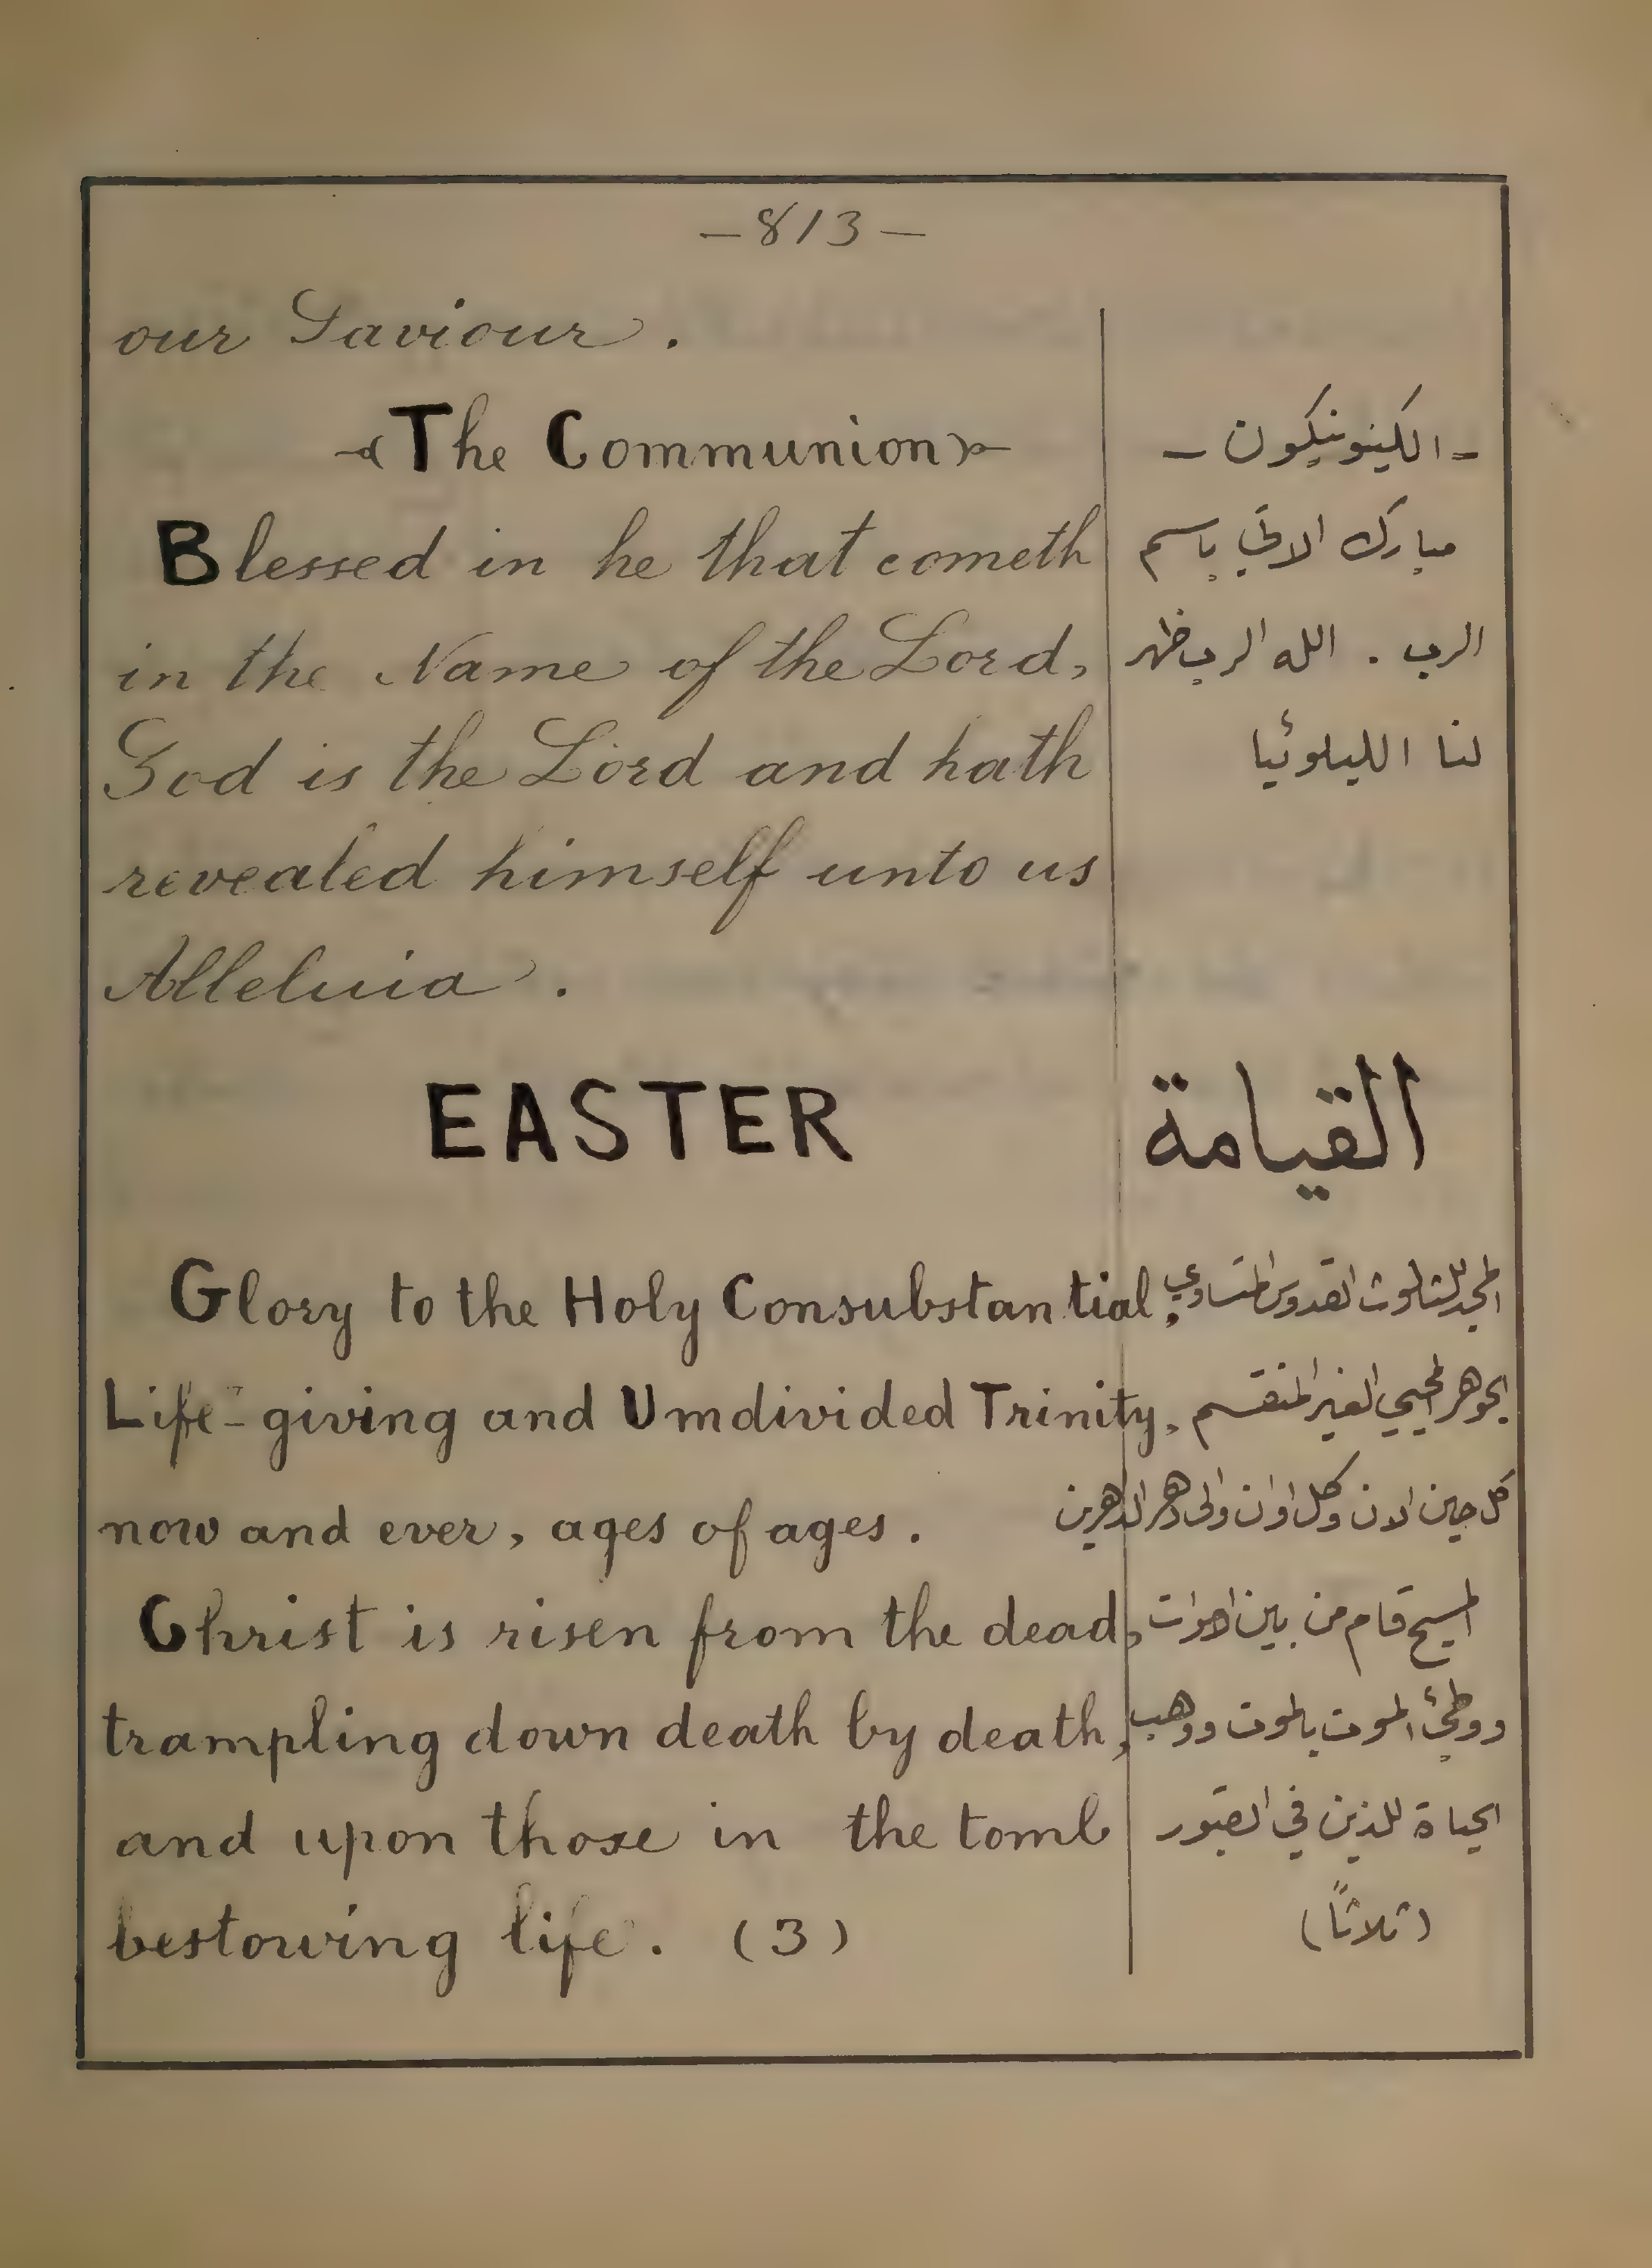 –813–
our Saviour.
The Communion
Blessed in he that cometh
in the Name of the Lord,
God is the Lord and hath
revealed himself unto us
Alleluia.
- الكينونيكون -
مبارك الاتي باسم
الرب . الله الرب ظهر
لنا الليلوئيا
EASTER
القيامة
Glory to the Holy Consubstantial,
Life-giving and Umdivided Trinity,
now and ever, ages of ages.
Christ is risen from the dead,
trampling down death by death,
and upon those in the tomb
bestowing life. (3)
المجد للثالوث القدوس المتساوي
الجوهر المحيي الغير المنقسم
كل حين الان وكل اوان والى دهر الداهرين
المسيح قام من بين الاموات
ووطئ الموت بالموت ووهب
الحياة للذين في القبور
(ثلاثًا)